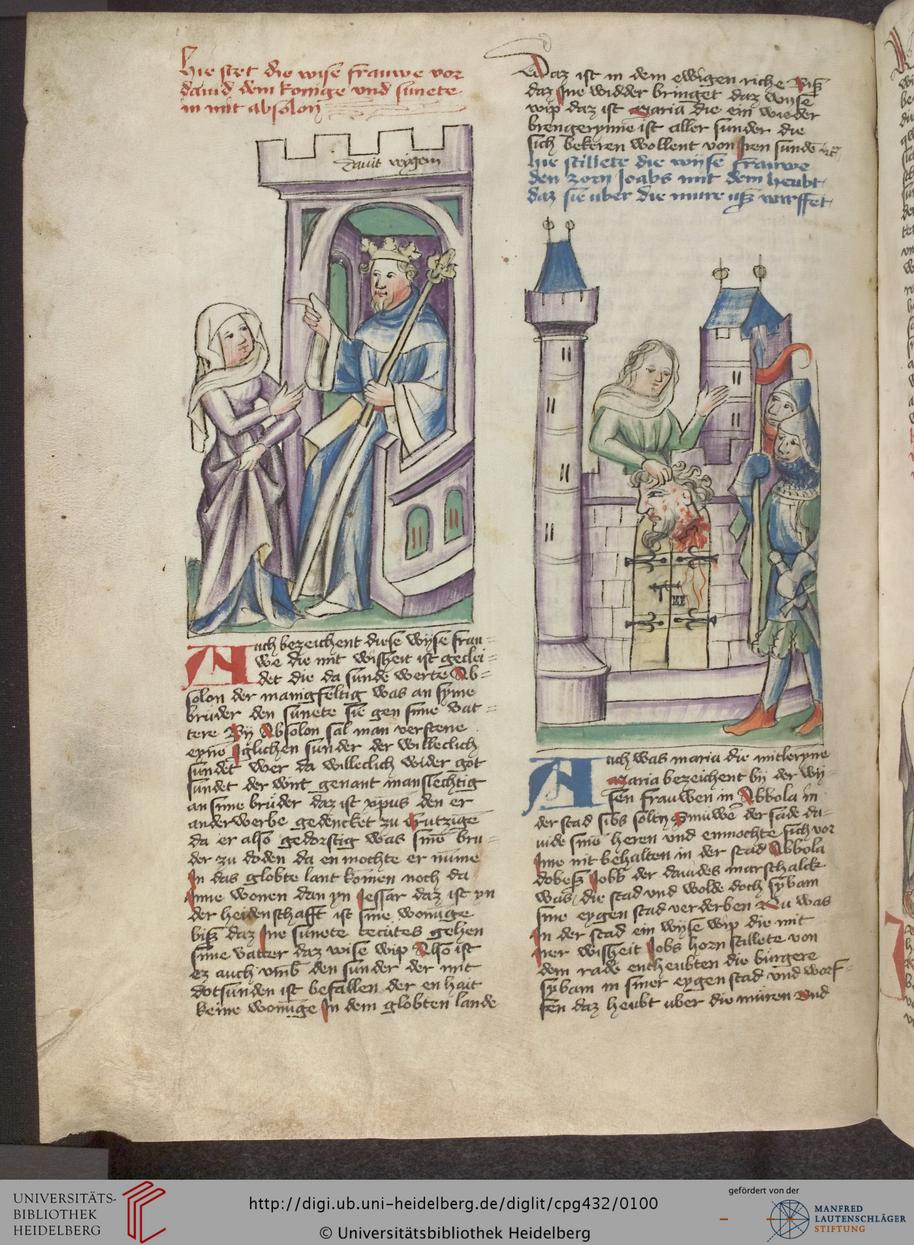 Hie stet die wise frauwe vor
dauid dem konige vnd sunete
in mit absolon
dauit regem
Auch bezeichent diese wyse frau-
we die mit wisheit ist geclei-
det die da sunde werte Ab-
solon der manigfeltig was an syme
bruder den sunete sie gen sime vat-
tere By Absolon sal man verstene
eyne iglichen sunder der willeclich
sundet wer da willeclich wider got
sundet der wirt genant manslechtig
an sime bruder daz ist xpus den er
anderwerbe gedencket zu crutzige
da er also gedorstig was sine bru-
der zu doden da en mochte er nume
In das globte lant komen noch da
Inne wonen dan yn Jessar daz ist yn
der heidenschafft ist sine wonuge
biß daz Ine sunete gehen
sime vatter daz wise wip Also ist
ez auch vmb den sunder der mit
dotsunden ist befallen der en hait
keine wonuge In dem globten lande
Daz ist in dem ewigen riche Biß
daz Ine widder bringet daz wyse
wip daz ist Maria die ein wieder
brengerynne ist aller sunder die
sich bekeren wollent von Iren sunde
Hie stillete die wyse frauwe
den zorn Joabs mit dem heubt
daz sie uber die mure uß warffet
Auch was maria die mitleryne
Maria bezeichent bij der wy-
sen frauwen in Abbola in
der stad sibs solen der sade da-
uide sine heren vnd enmochte sich vor
Ime nit behalten in der stad Abbola
dobeß Jobb der dauides marschalck
was die stad vnd wolde doch sybam
sine eygen stad verderben Nu was
In der stad ein wyse wip die mit
Irer wisheit Jobs horn stillete von
dem rade entheubten die burgere
sybam in siner eygen stad vnd worf-
fen daz heubt uber die muren vnd
UNIVERSITÄTS-
BIBLIOTHEK
HEIDELBERG
http://digi.ub.uni-heidelberg.de/diglit/cpg432/0100
© Universitätsbibliothek Heidelberg
gefördert von der
MANFRED
LAUTENSCHLÄGER
STIFTUNG